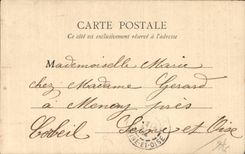 CARTE POSTALE
Ce côté est exclusivement réservé à l'adresse
Mademoiselle Marie
chez Madame Gerard
à Menecy près
Corbeil Seine et Oise
ET-OISE